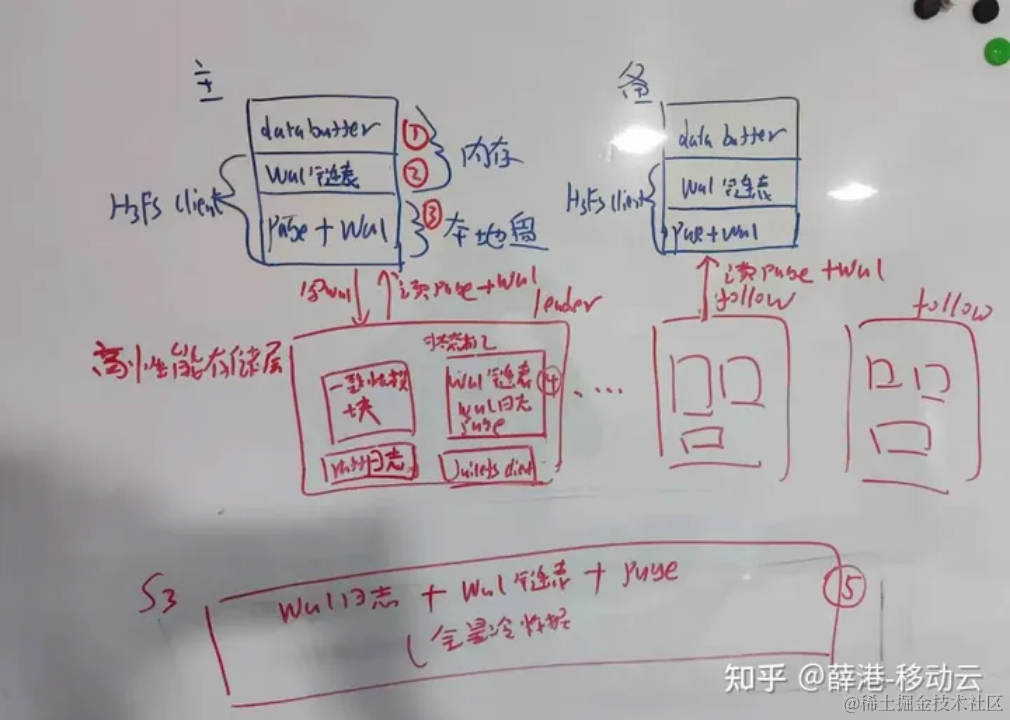 主
备
data buffer ①
内存
Wal 链表 ②
H3FS client
page + Wal ③
本地盘
data buffer
Wal 链表
H3FS client
page + Wal
写wal
读page + Wal
leader
读page + Wal
follow
follow
高性能存储层
状态机
一致性模
块
Wal 链表
Wal日志
page
④
raft日志
client
S3
Wal日志 + Wal 链表 + page
⑤
(全量冷数据
知乎 @薛港-移动云
@稀土掘金技术社区